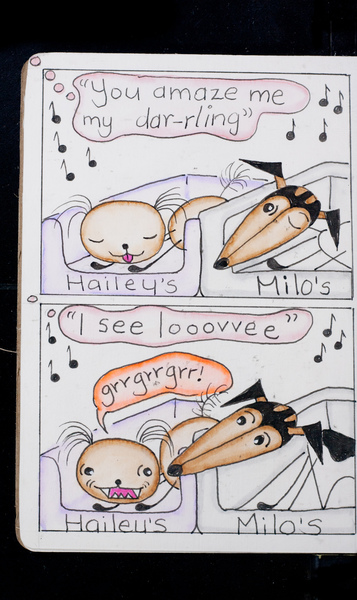 "You amaze me
my dar-rling"
Hailey's Milo's
"I see looovvee"
grrgrrgrr!
Hailey's Milo's